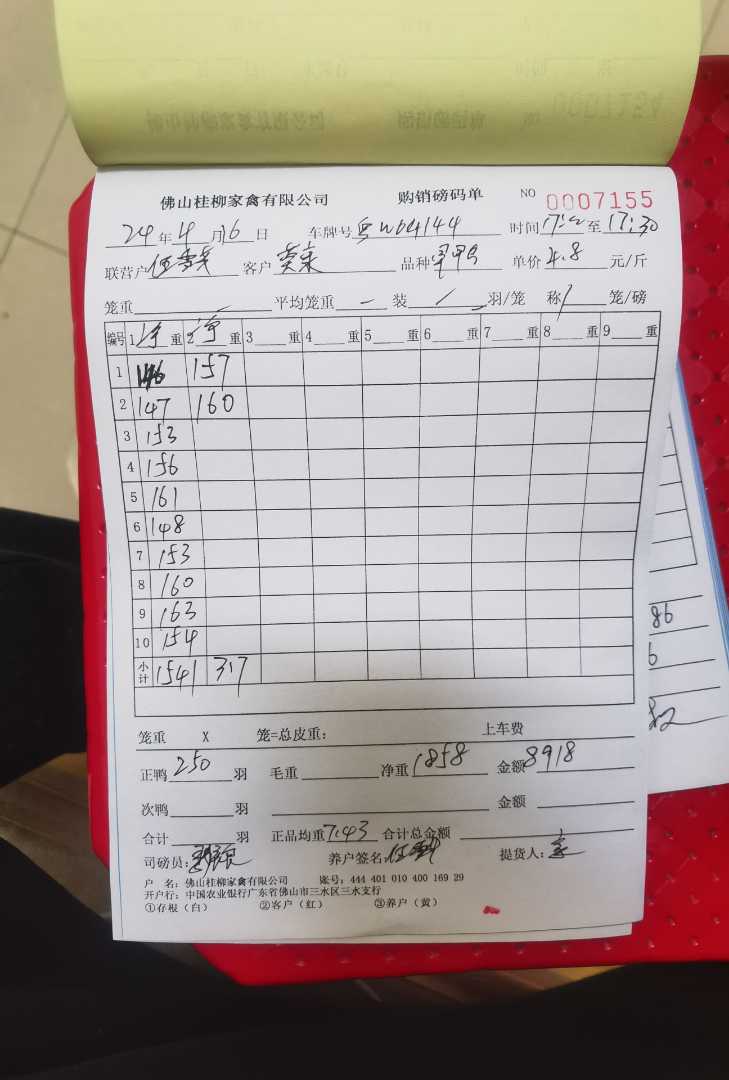 佛山桂柳家禽有限公司 购销磅码单 NO 0007155
24年4月16日 车牌号粤W04144 时间17: 至17:30
联营户 客户 品种 单价4.8元/斤
笼重 平均笼重 — 装 / 羽/笼 称 / 笼/磅
编号 1净重 2净重 3 重 4 重 5 重 6 重 7 重 8 重 9 重
1 146 157
2 147 160
3 153
4 156
5 161
6 148
7 153
8 160
9 163
10 154
小计 1541 317
笼重 X 笼=总皮重: 上车费
正鸭250羽 毛重 净重1858 金额8918
次鸭 羽 金额
合计 羽 正品均重7.43 合计总金额
司磅员: 养户签名: 提货人:
户 名: 佛山桂柳家禽有限公司 账号: 444 401 010 400 169 29
开户行: 中国农业银行广东省佛山市三水区三水支行
①存根（白） ②客户（红） ③养户（黄）
86
6